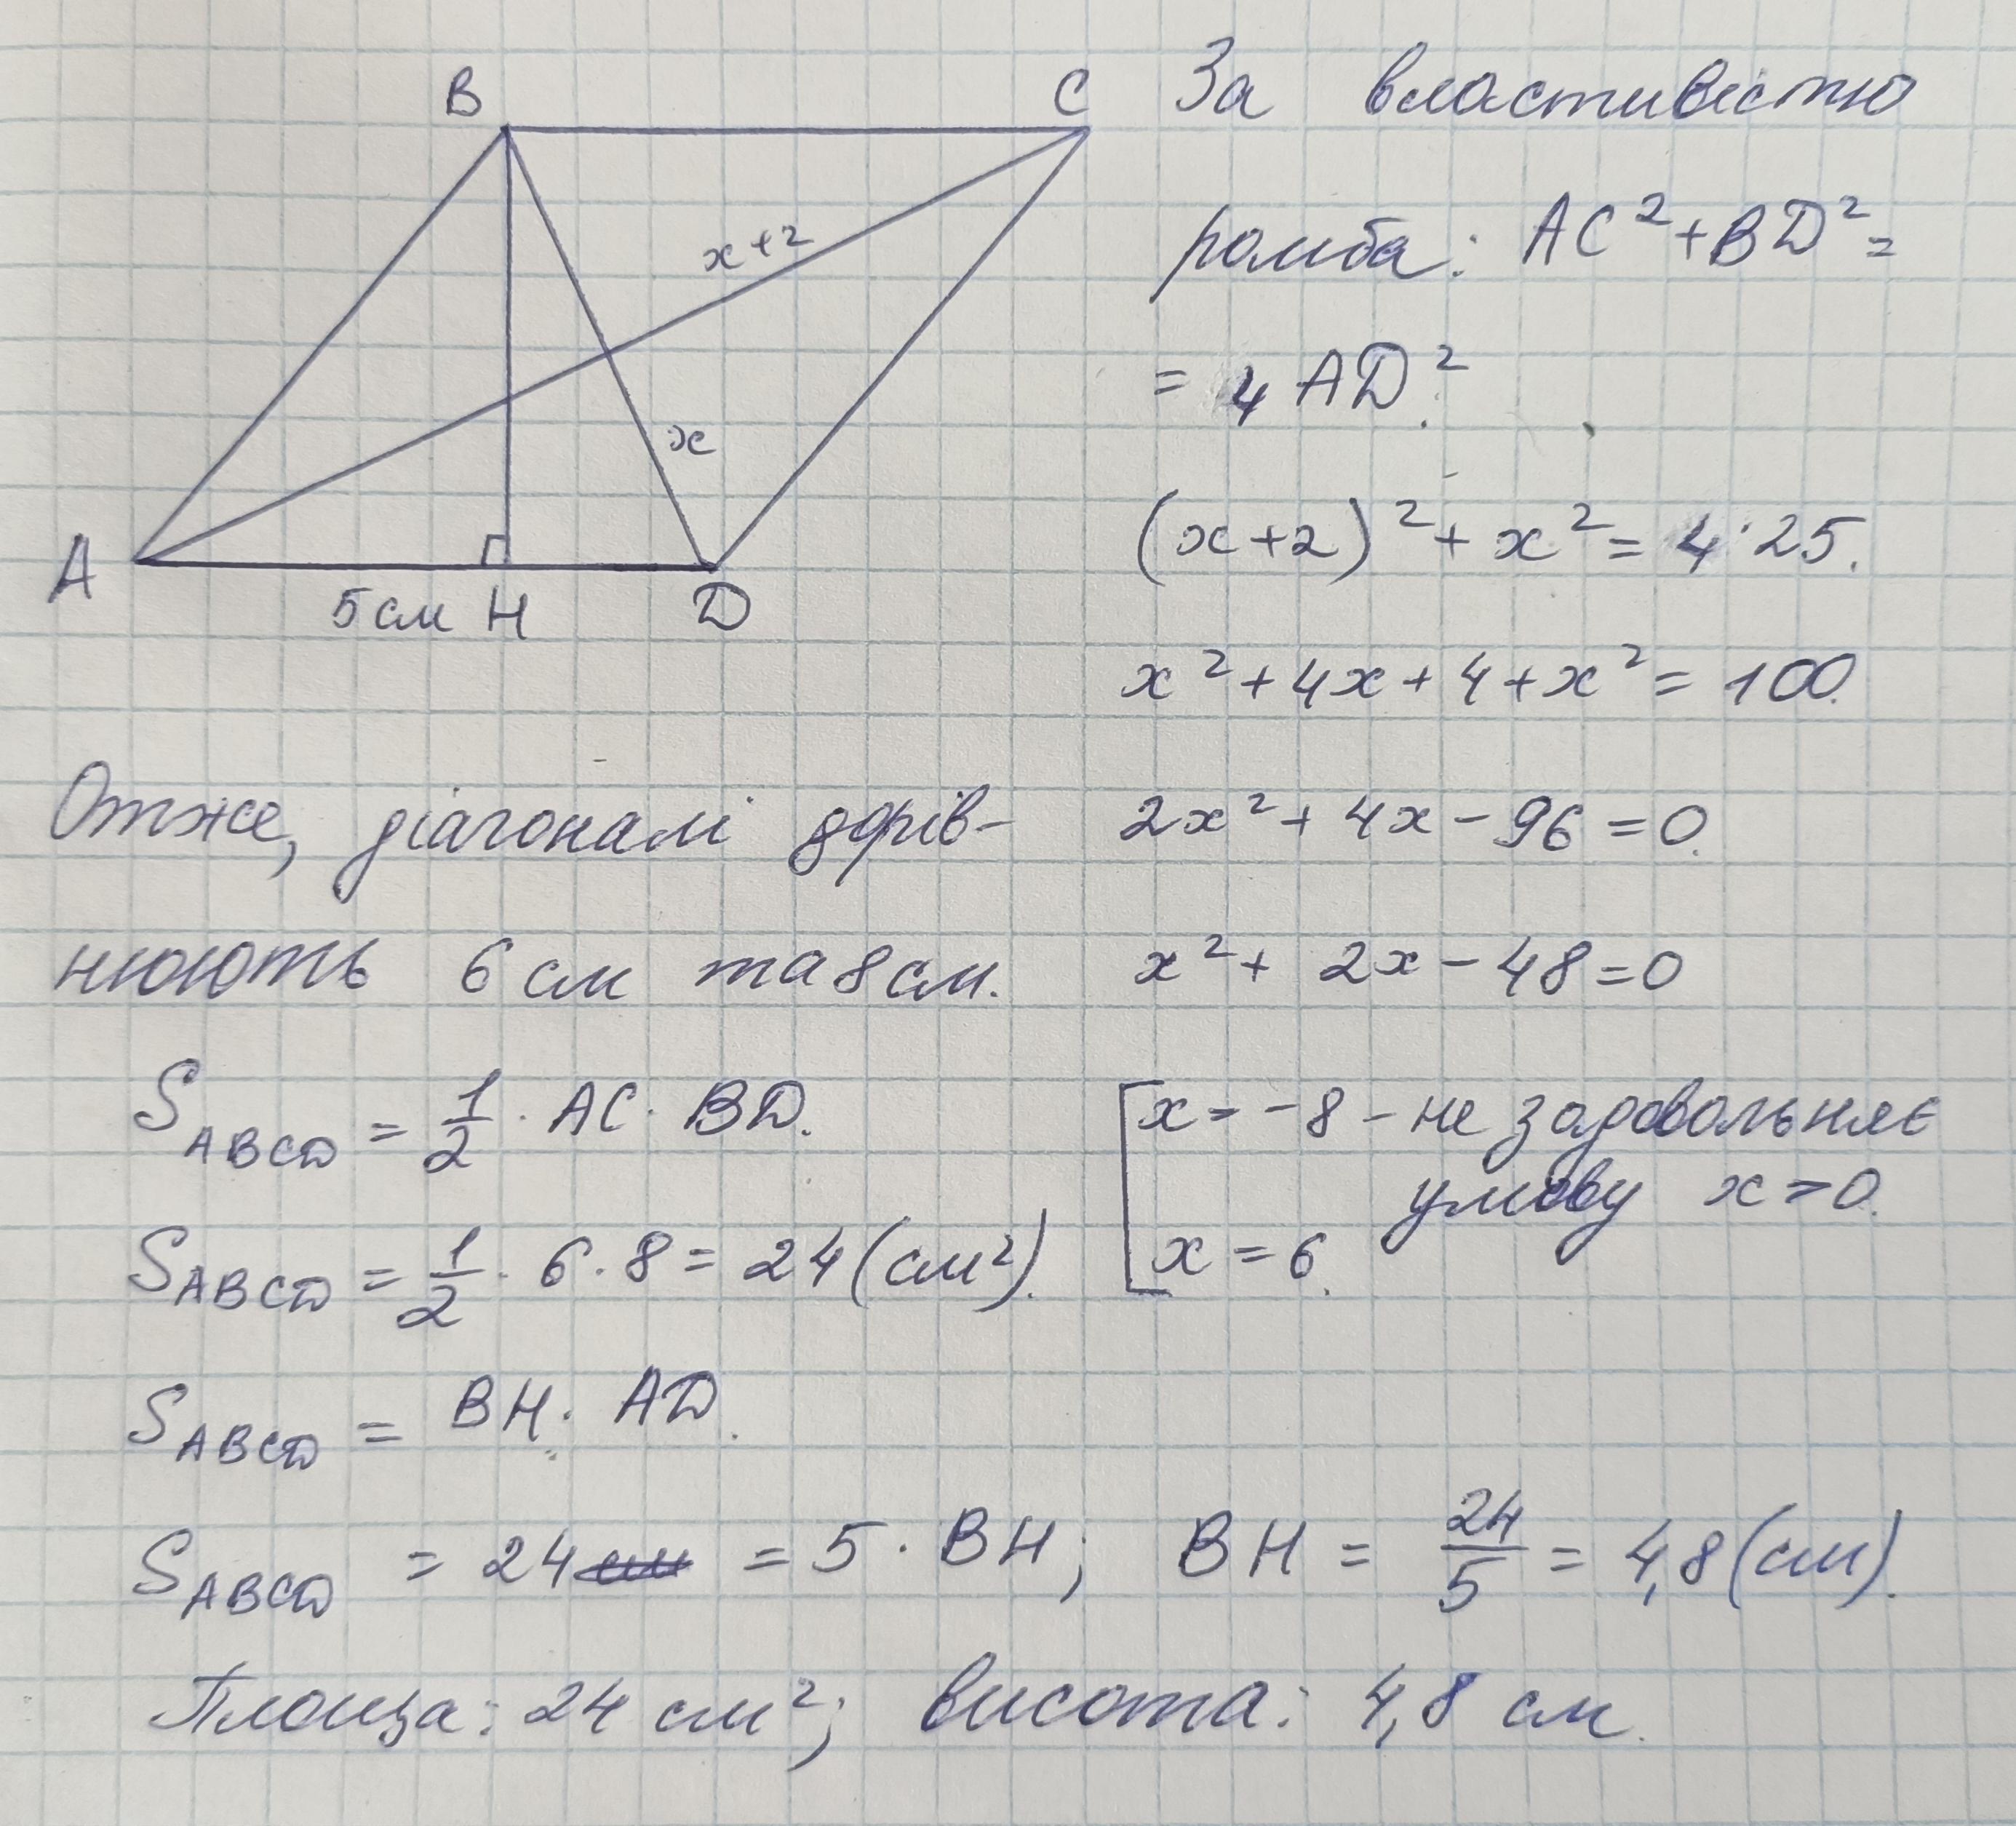 B
C
x+2
x
A
5 см H
D
За властивістю
ромба: AC² + BD² =
= 4 AD².
(x+2)² + x² = 4·25.
x² + 4x + 4 + x² = 100.
2x² + 4x - 96 = 0.
x² + 2x - 48 = 0
[x = -8 - не задовольняє
умову x > 0.
x = 6.
Отже, діагоналі дорів-
нюють 6 см та 8 см.
S_ABCD = 1/2 · AC · BD.
S_ABCD = 1/2 · 6 · 8 = 24 (см²).
S_ABCD = BH · AD.
S_ABCD = 24 = 5 · BH; BH = 24/5 = 4,8 (см).
Площа: 24 см²; висота: 4,8 см.